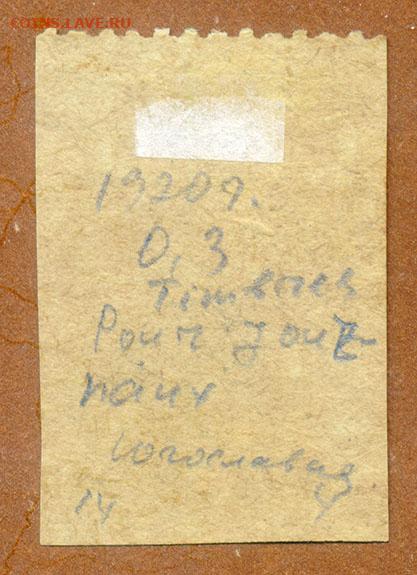 COINS.LAVE.RU
1920г.
0,3
Timbres
Pour Jour
naux
Югославия
14